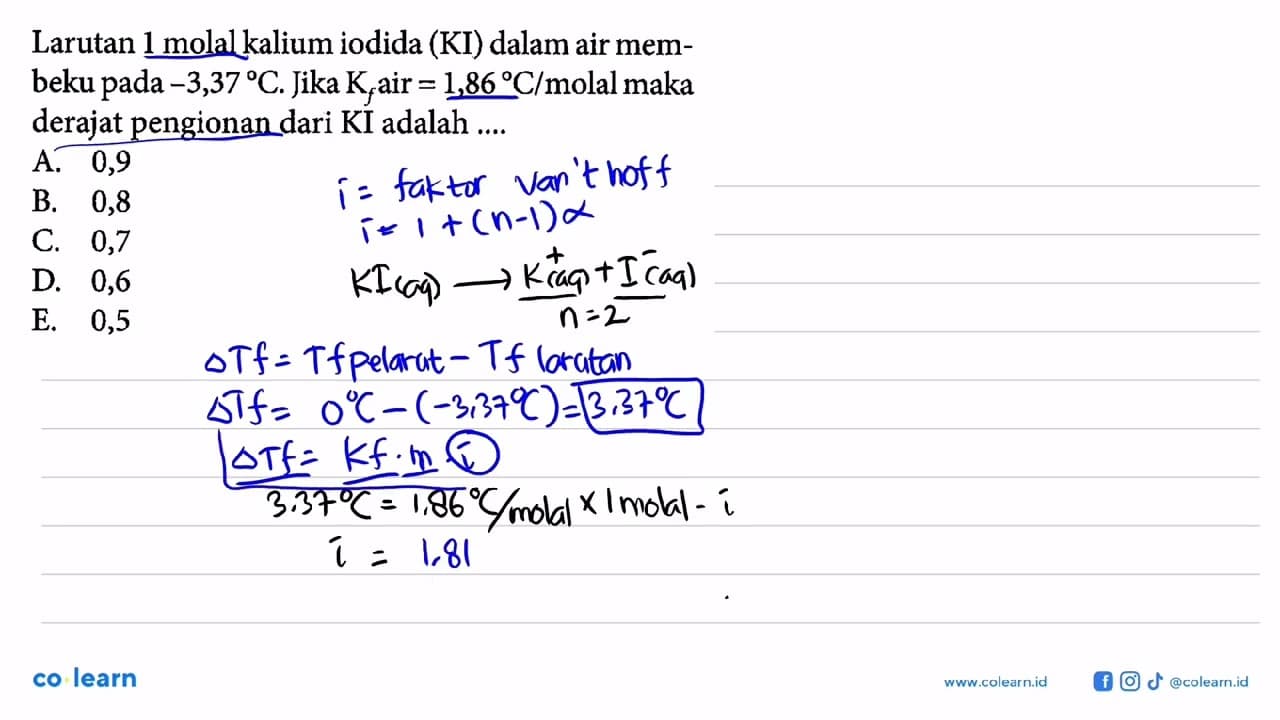 Larutan 1 molal kalium iodida (KI) dalam air mem-
beku pada –3,37 °C. Jika K_f air = 1,86 °C/molal maka
derajat pengionan dari KI adalah ....
A. 0,9
B. 0,8
C. 0,7
D. 0,6
E. 0,5
i = faktor van't hoff
i = 1 + (n-1)α
KI(aq) → K⁺(aq) + I⁻(aq)
n = 2
ΔTf = Tf pelarut - Tf larutan
ΔTf = 0°C - (-3,37°C) = 3,37°C
ΔTf = Kf . m . i
3.37°C = 1,86°C/molal × 1 molal - i
i = 1,81
co learn
www.colearn.id
@colearn.id